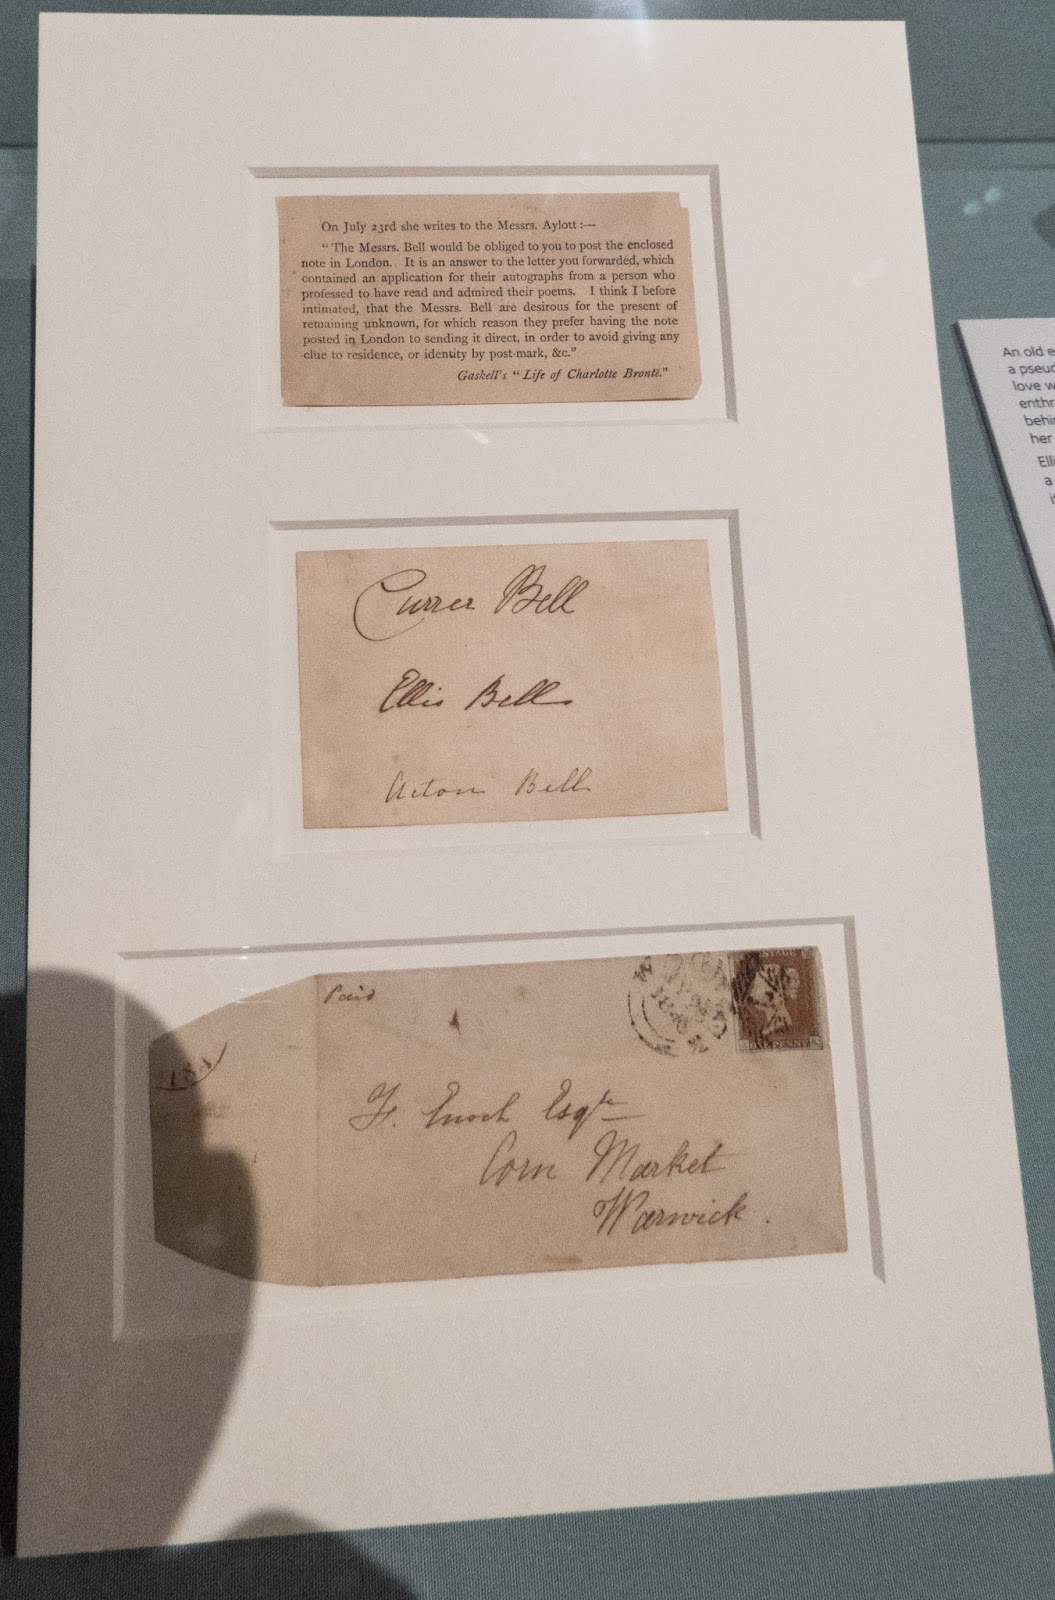 On July 23rd she writes to the Messrs. Aylott :—
“The Messrs. Bell would be obliged to you to post the enclosed
note in London. It is an answer to the letter you forwarded, which
contained an application for their autographs from a person who
professed to have read and admired their poems. I think I before
intimated, that the Messrs. Bell are desirous for the present of
remaining unknown, for which reason they prefer having the note
posted in London to sending it direct, in order to avoid giving any
clue to residence, or identity by post-mark, &c.”
Gaskell's “Life of Charlotte Brontë.”
Currer Bell
Ellis Bell
Acton Bell
Paid
F. Enoch Esqre
Corn Market
Warwick.
An old
a
love
her
a